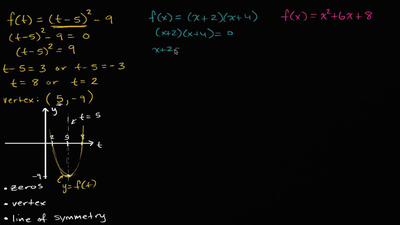 f(t) = (t-5)² - 9
(t-5)² - 9 = 0
(t-5)² = 9
t-5 = 3 or t-5 = -3
t = 8 or t = 2
vertex: (5, -9)
y
t = 5
2 5 8 t
-9
y = f(t)
• zeros
• vertex
• line of symmetry
f(x) = (x+2)(x+4)
(x+2)(x+4) = 0
x+2=
f(x) = x² + 6x + 8